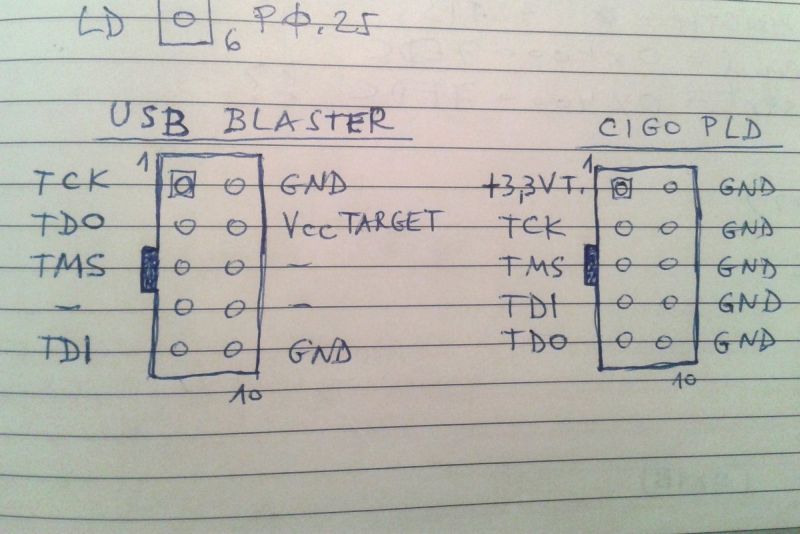 LD 6 PΦ.25
USB BLASTER
1
TCK GND
TDO VCC TARGET
TMS -
- -
TDI GND
10
CIGO PLD
1
+3,3VT. GND
TCK GND
TMS GND
TDI GND
TDO GND
10